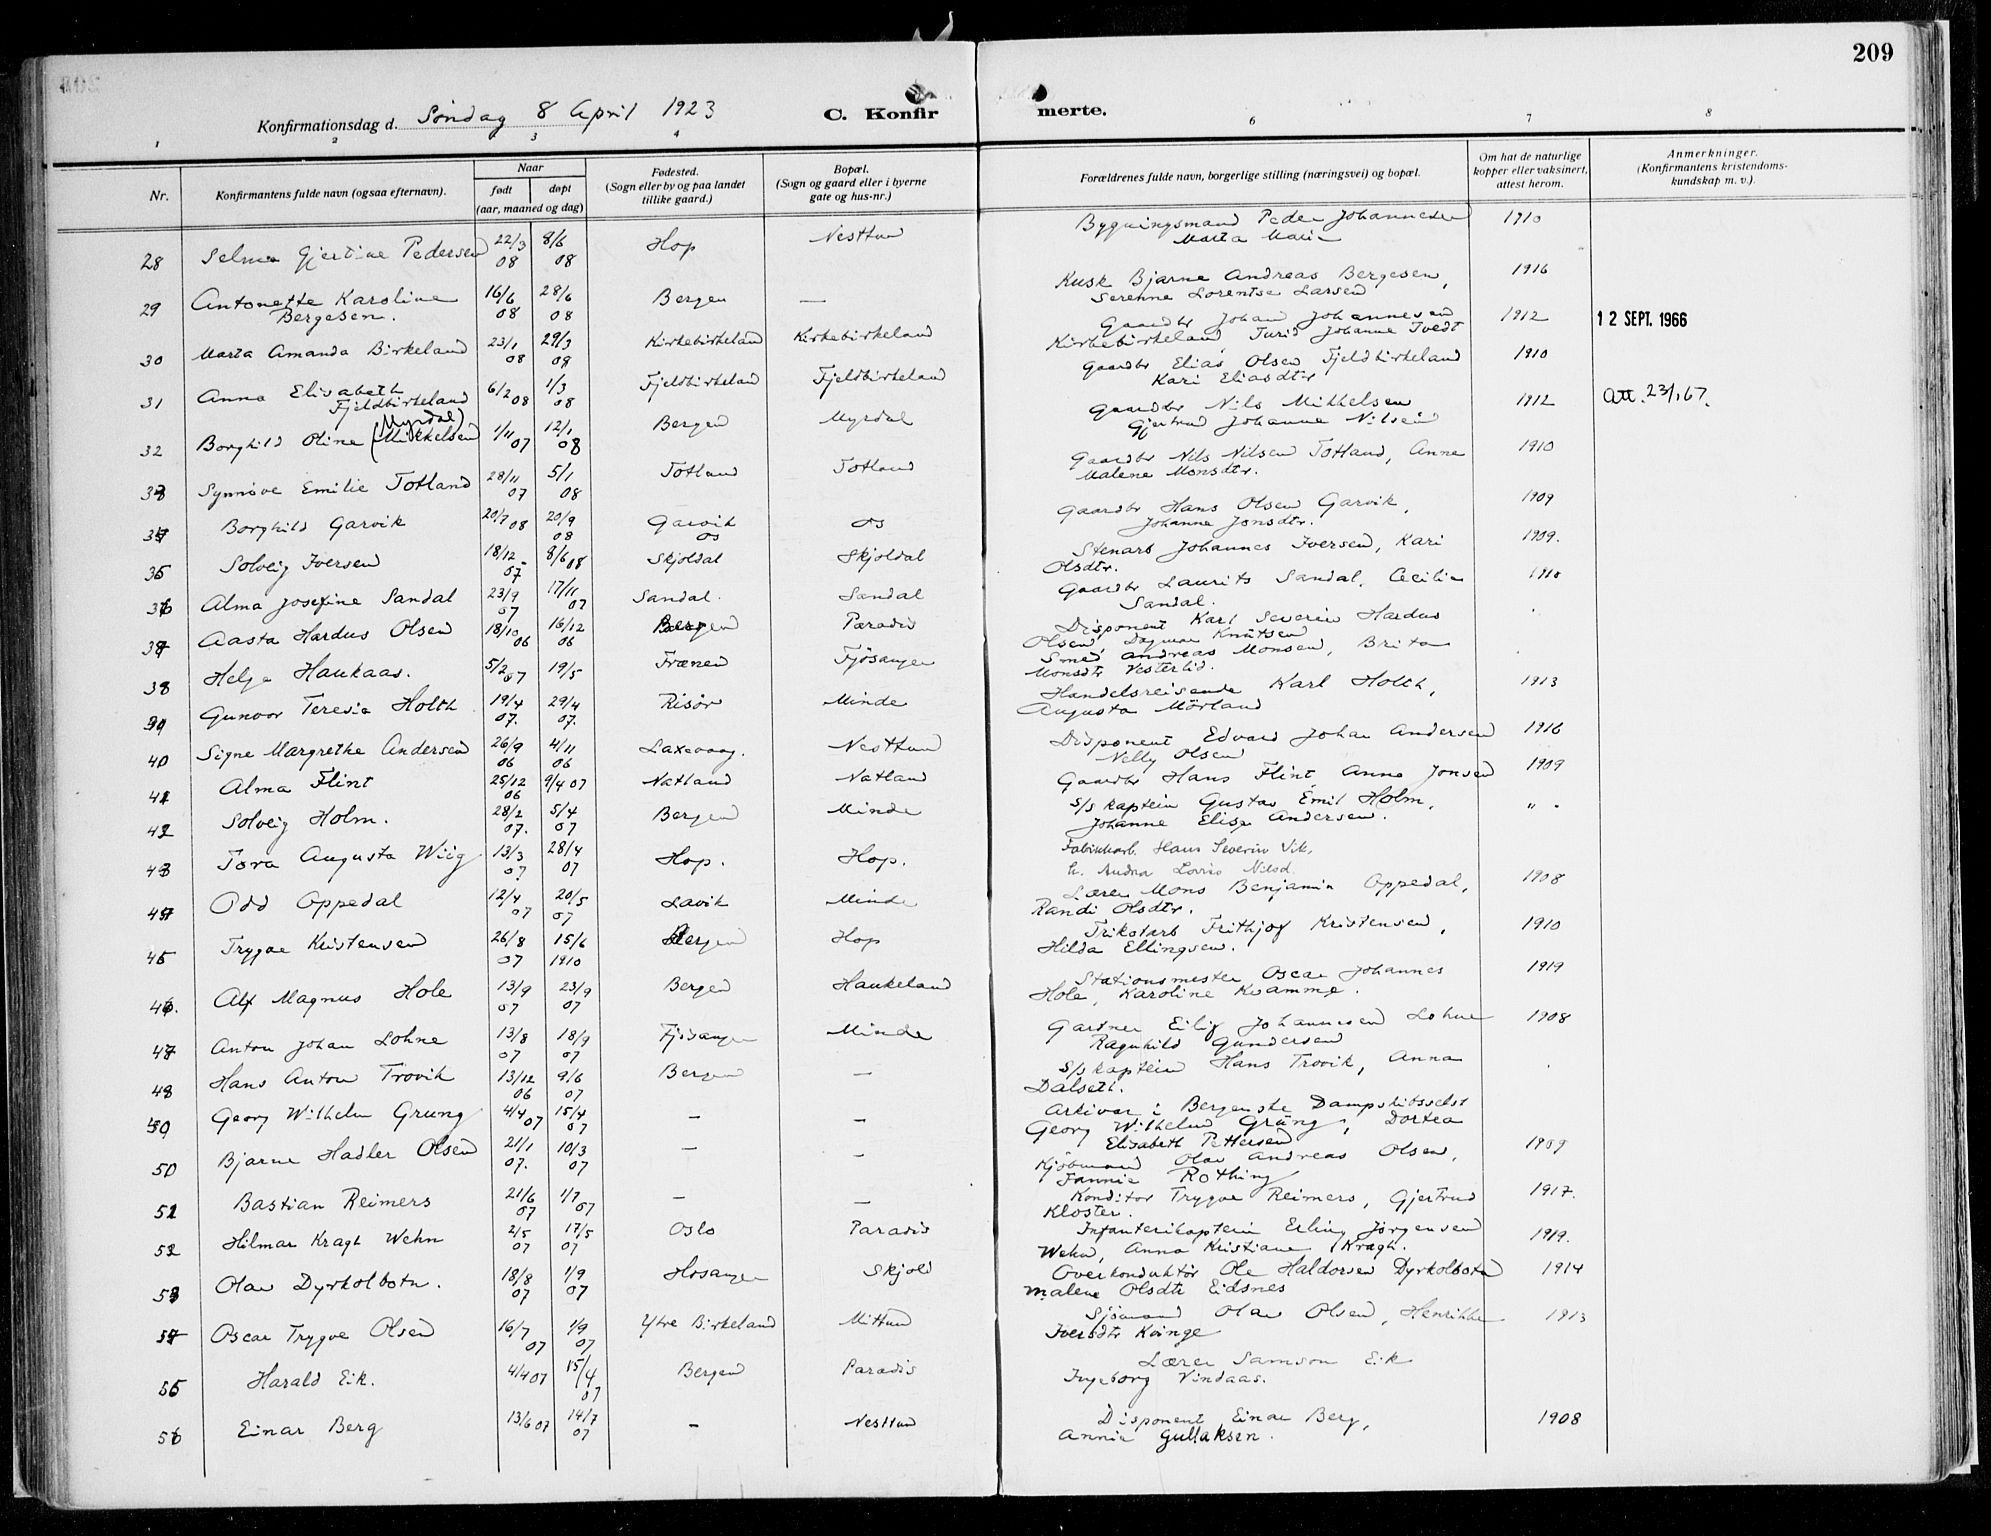 209
Konfirmationsdag d. Søndag 8 April 1923 C. Konfirmerte.
1 2 3 4 6 7 8
Nr. Konfirmantens fulde navn (ogsaa efternavn). Naar født døpt (aar, maaned og dag) Fødested. (Sogn eller by og paa landet tillike gaard.) Bopæl. (Sogn og gaard eller i byerne gate og hus-nr.) Forældrenes fulde navn, borgerlige stilling (næringsvei) og bopæl. Om hat de naturlige kopper eller vaksinert, attest herom. Anmerkninger. (Konfirmantens kristendoms-kundskap m. v.).
28 Selma Gjertine Pedersen 22/3 08 8/6 08 Hop Nesttun Bygningsmand Peder Johannesen Marta Marie 1910
29 Antonette Karoline Bergesen. 16/6 08 28/6 08 Bergen — Kusk Bjarne Andreas Bergesen, Serenne Lorentse Larsen 1916
30 Marta Amanda Birkeland 23/1 08 29/3 08 Kirkebirkeland Kirkebirkeland Gaardbr Johan Johannesen Kirkebirkeland Turid Johanne Tvedt 1912 12 SEPT. 1966
31 Anna Elisabeth Fjeldbirkeland 6/2 08 1/3 08 Fjeldbirkeland Fjeldbirkeland Gaardbr Elias Olsen Fjeldbirkeland Kari Eliasdtr 1910
32 Borghild Oline (Mikkelsen) Myrdal 1/11 07 12/1 08 Bergen Myrdal Gaardbr Nils Mikkelsen Gjertrud Johanne Nilsen 1912 Att. 23/1 67.
33 Synnøve Emilie Totland 28/11 07 5/1 08 Totland Totland Gaardbr Nils Nilsen Totland, Anne Malene Monsdtr. 1910
34 Borghild Garvik 20/7 08 20/9 08 Garvik Os Os Gaardbr Hans Olsen Garvik, Johanne Jonsdtr. 1909
35 Solveig Iversen 18/12 07 8/6 08 Skjoldal Skjoldal Stenarb Johannes Iversen, Kari Olsdtr. 1909.
36 Alma Josefine Sandal 23/9 07 17/11 07 Sandal. Sandal Gaardbr Laurits Sandal, Cecilie Sandal. 1910
37 Aasta Hardus Olsen 18/10 06 16/12 06 Bergen Paradis Disponent Karl Severin Hardus Olsen, Dagmar Knutsen
38 Helga Haukaas. 5/2 07 19/5 Frænen Fjøsanger Smed Andreas Monsen, Brita Monsdtr Vesterlid.
39 Gunvor Teresia Holth 19/4 07. 29/4 07. Risør Minde Handelsreisende Karl Holth, Augusta Mörland 1913
40 Signe Margrethe Andersen 26/9 06 4/11 06 Laxevaag. Nesttun Disponent Edvard Johan Andersen Nelly Olsen 1916
41 Alma Flint 25/12 06 9/4 07 Natland Natland Gaardbr Hans Flint Anna Jonsen 1909
42 Solveig Holm. 28/2 07. 5/4 07 Bergen Minde S/s kaptein Gustav Emil Holm, Johanne Elise Andersen. " .
43 Tora Augusta Wiig 13/3 07 28/4 07 Hop. Hop. Fabrikkarb. Hans Severin Vik,
44 Odd Oppedal 12/4 07 20/5 07 Lavik Minde Lærer Mons Benjamin Oppedal, Randi Olsdtr. 1908
45 Trygve Kristensen 26/8 07 15/6 1910 Bergen Hop Trikotarb Frithjof Kristensen, Hilda Ellingsen. 1910
46. Alf Magnus Hole 13/9 07 23/9 07 Bergen Haukeland Stationsmester Oscar Johannes Hole, Karoline Kvamme. 1919
47 Anton Johan Lohne 13/8 07 18/9 07 Fjøsanger Minde Gartner Eilif Johannesen Lohne Ragnhild Gundersen 1908
48 Hans Anton Trovik 13/12 06 9/6 07 Bergen — S/s kaptein Hans Trovik, Anna Dalseth.
Georg Wilhelm Grung 4/4 07 15/4 07 — — Arkivar i Bergenske Dampskibsselsk Georg Wilhelm Grung, Dortea Elisabeth Pettersen
50 Bjarne Hadler Olsen 21/1 07. 10/3 07 — — Kjøbmand Olav Andreas Olsen, Fannie Rothing 1909
51 Bastian Reimers 21/6 07 1/7 07 — — Konditor Trygve Reimers, Gjertrud Kloster. 1917.
52 Hilmar Kragh Wehn 2/5 07 17/5 07 Oslo Paradis Infanterikaptein Erling Jørgensen Wehn, Anna Kristiane Kragh. 1919.
53 Olav Dyrkolbotn. 18/8 07 1/9 07 Hosanger Skjold Overkonduktør Ole Haldorsen Dyrkolbotn Malene Olsdtr Eidsnes 1914
54 Oscar Trygve Olsen 16/7 07 1/9 07 Ytre Birkeland Mittun Sjömand Olav Olsen, Henrikke Iversdtr Kvinge 1913
55 Harald Eik. 4/4 07 15/4 07 Bergen Paradis Lærer Samson Eik Ingeborg Vindaas.
56 Einar Berg 13/6 07 14/7 07 — Nesttun Disponent Einar Berg, Annie Gullaksen. 1908